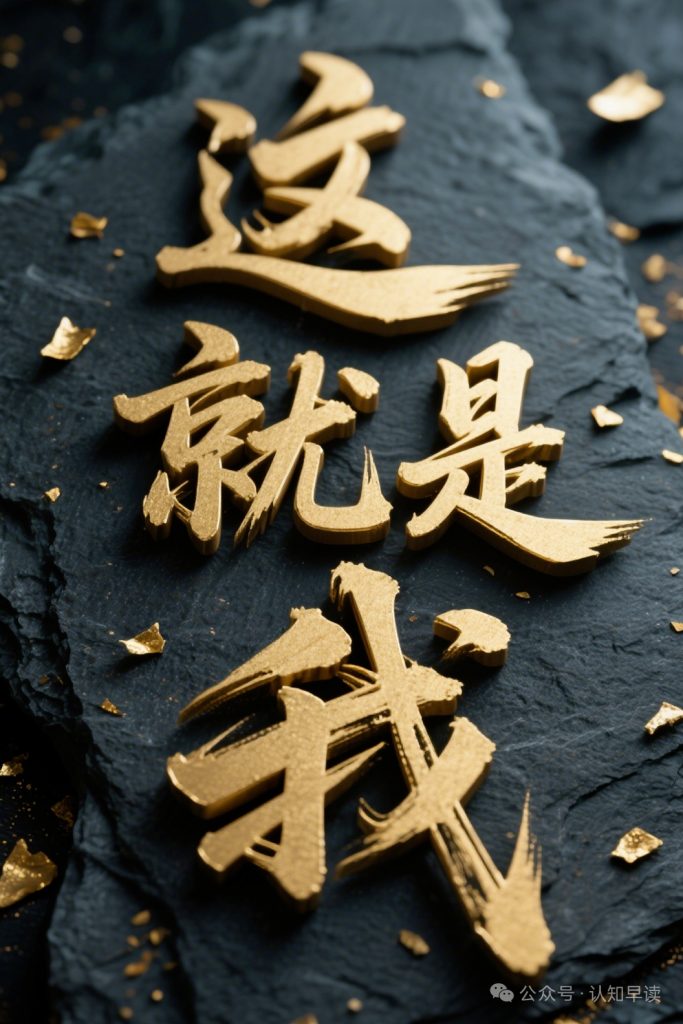 这
就是
我
公众号·认知早读